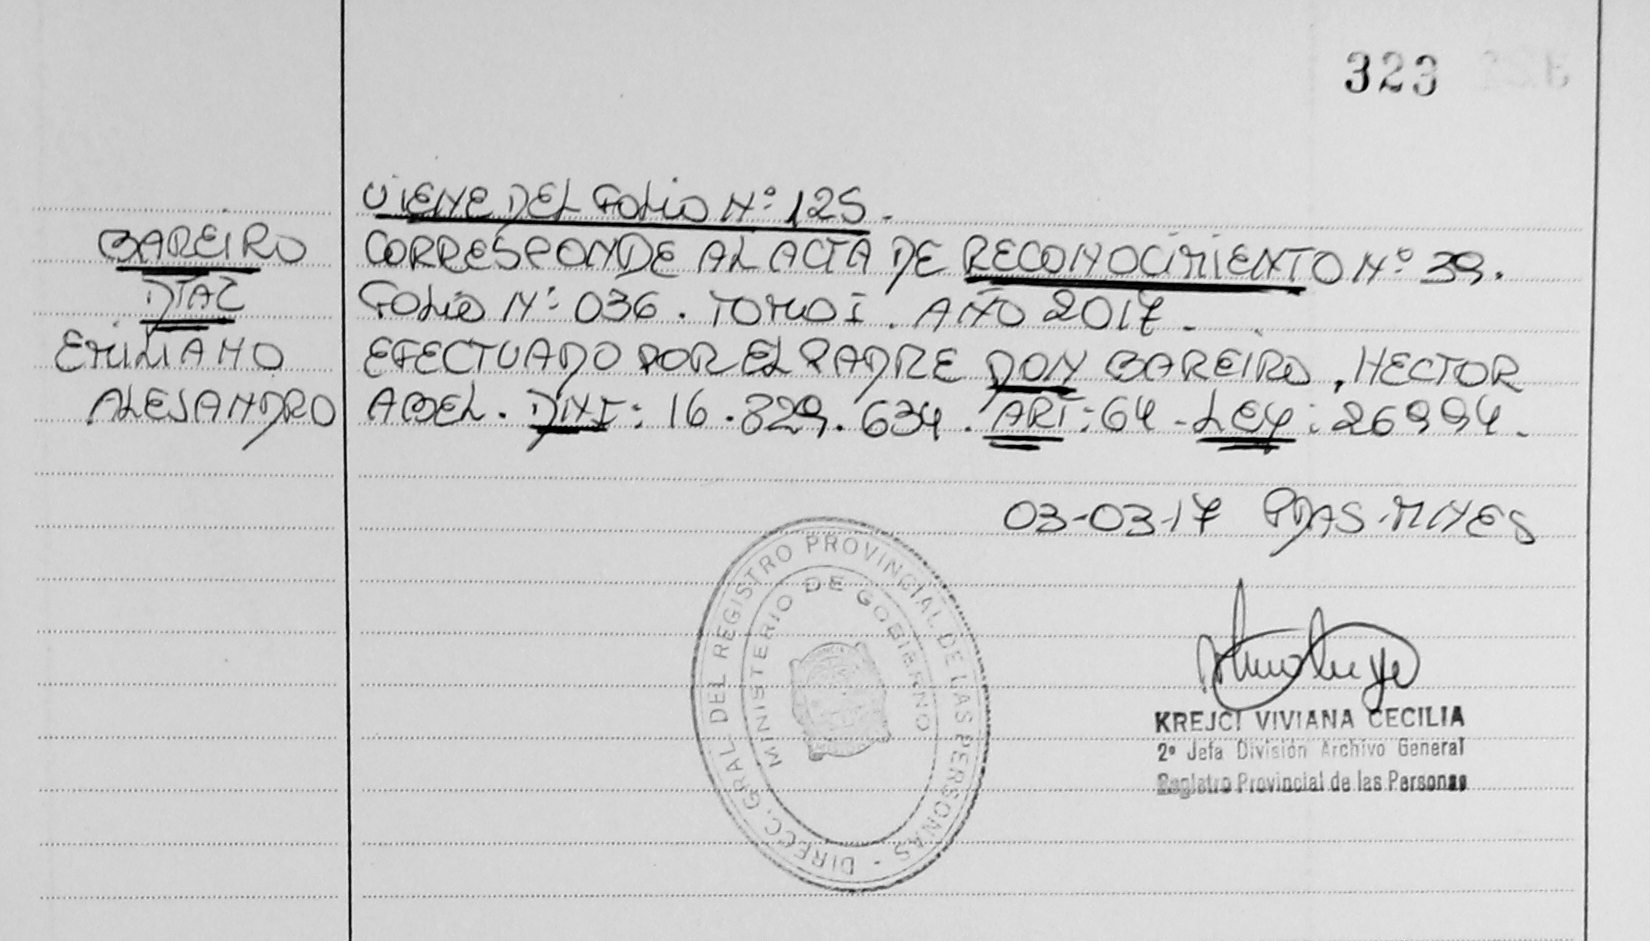 323
VIENE DEL FOLIO N° 125.
BAREIRO
DIAZ
EMILIANO
ALEJANDRO
CORRESPONDE AL ACTA DE RECONOCIMIENTO N° 39.
FOLIO N° 036. TOMO I. AÑO 2017.
EFECTUADO POR EL PADRE DON BAREIRO, HECTOR
ABEL. DNI: 16.829.634. ART: 64 - LEY: 26994.
03-03-17 PDAS. MNES
DIRECC. GRAL. DEL REGISTRO PROVINCIAL DE LAS PERSONAS -
MINISTERIO DE GOBIERNO
KREJCI VIVIANA CECILIA
2° Jefa División Archivo General
Registro Provincial de las Personas